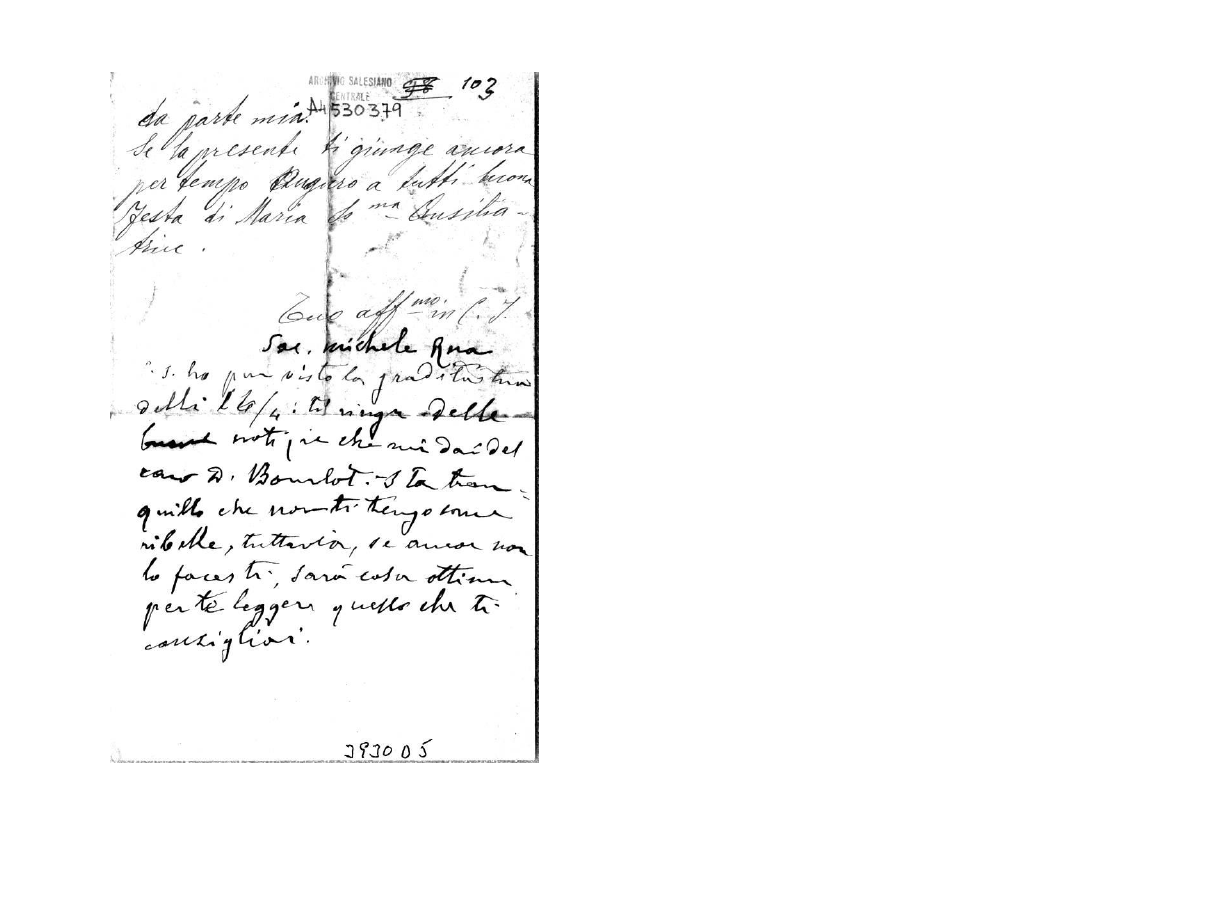 ARCHIVIO SALESIANO
CENTRALE
103
A4530379
da parte mia.
Se la presente ti giunge ancora
per tempo Auguro a tutti buona
Festa di Maria SS ma Ausilia-
trice.
Tuo aff mo in C. J.
Sac. Michele Rua
P. S. ho pur visto la gradita tua
delli 26/4: ti ringr. delle
notizie che mi dai del
caro D. Bourlot. Sta tran=
quillo che non ti tengo come
ribelle, tuttavia, se ancor non
lo facesti, sarà cosa ottima
per te leggere quello che ti
consigliai.
3930D5